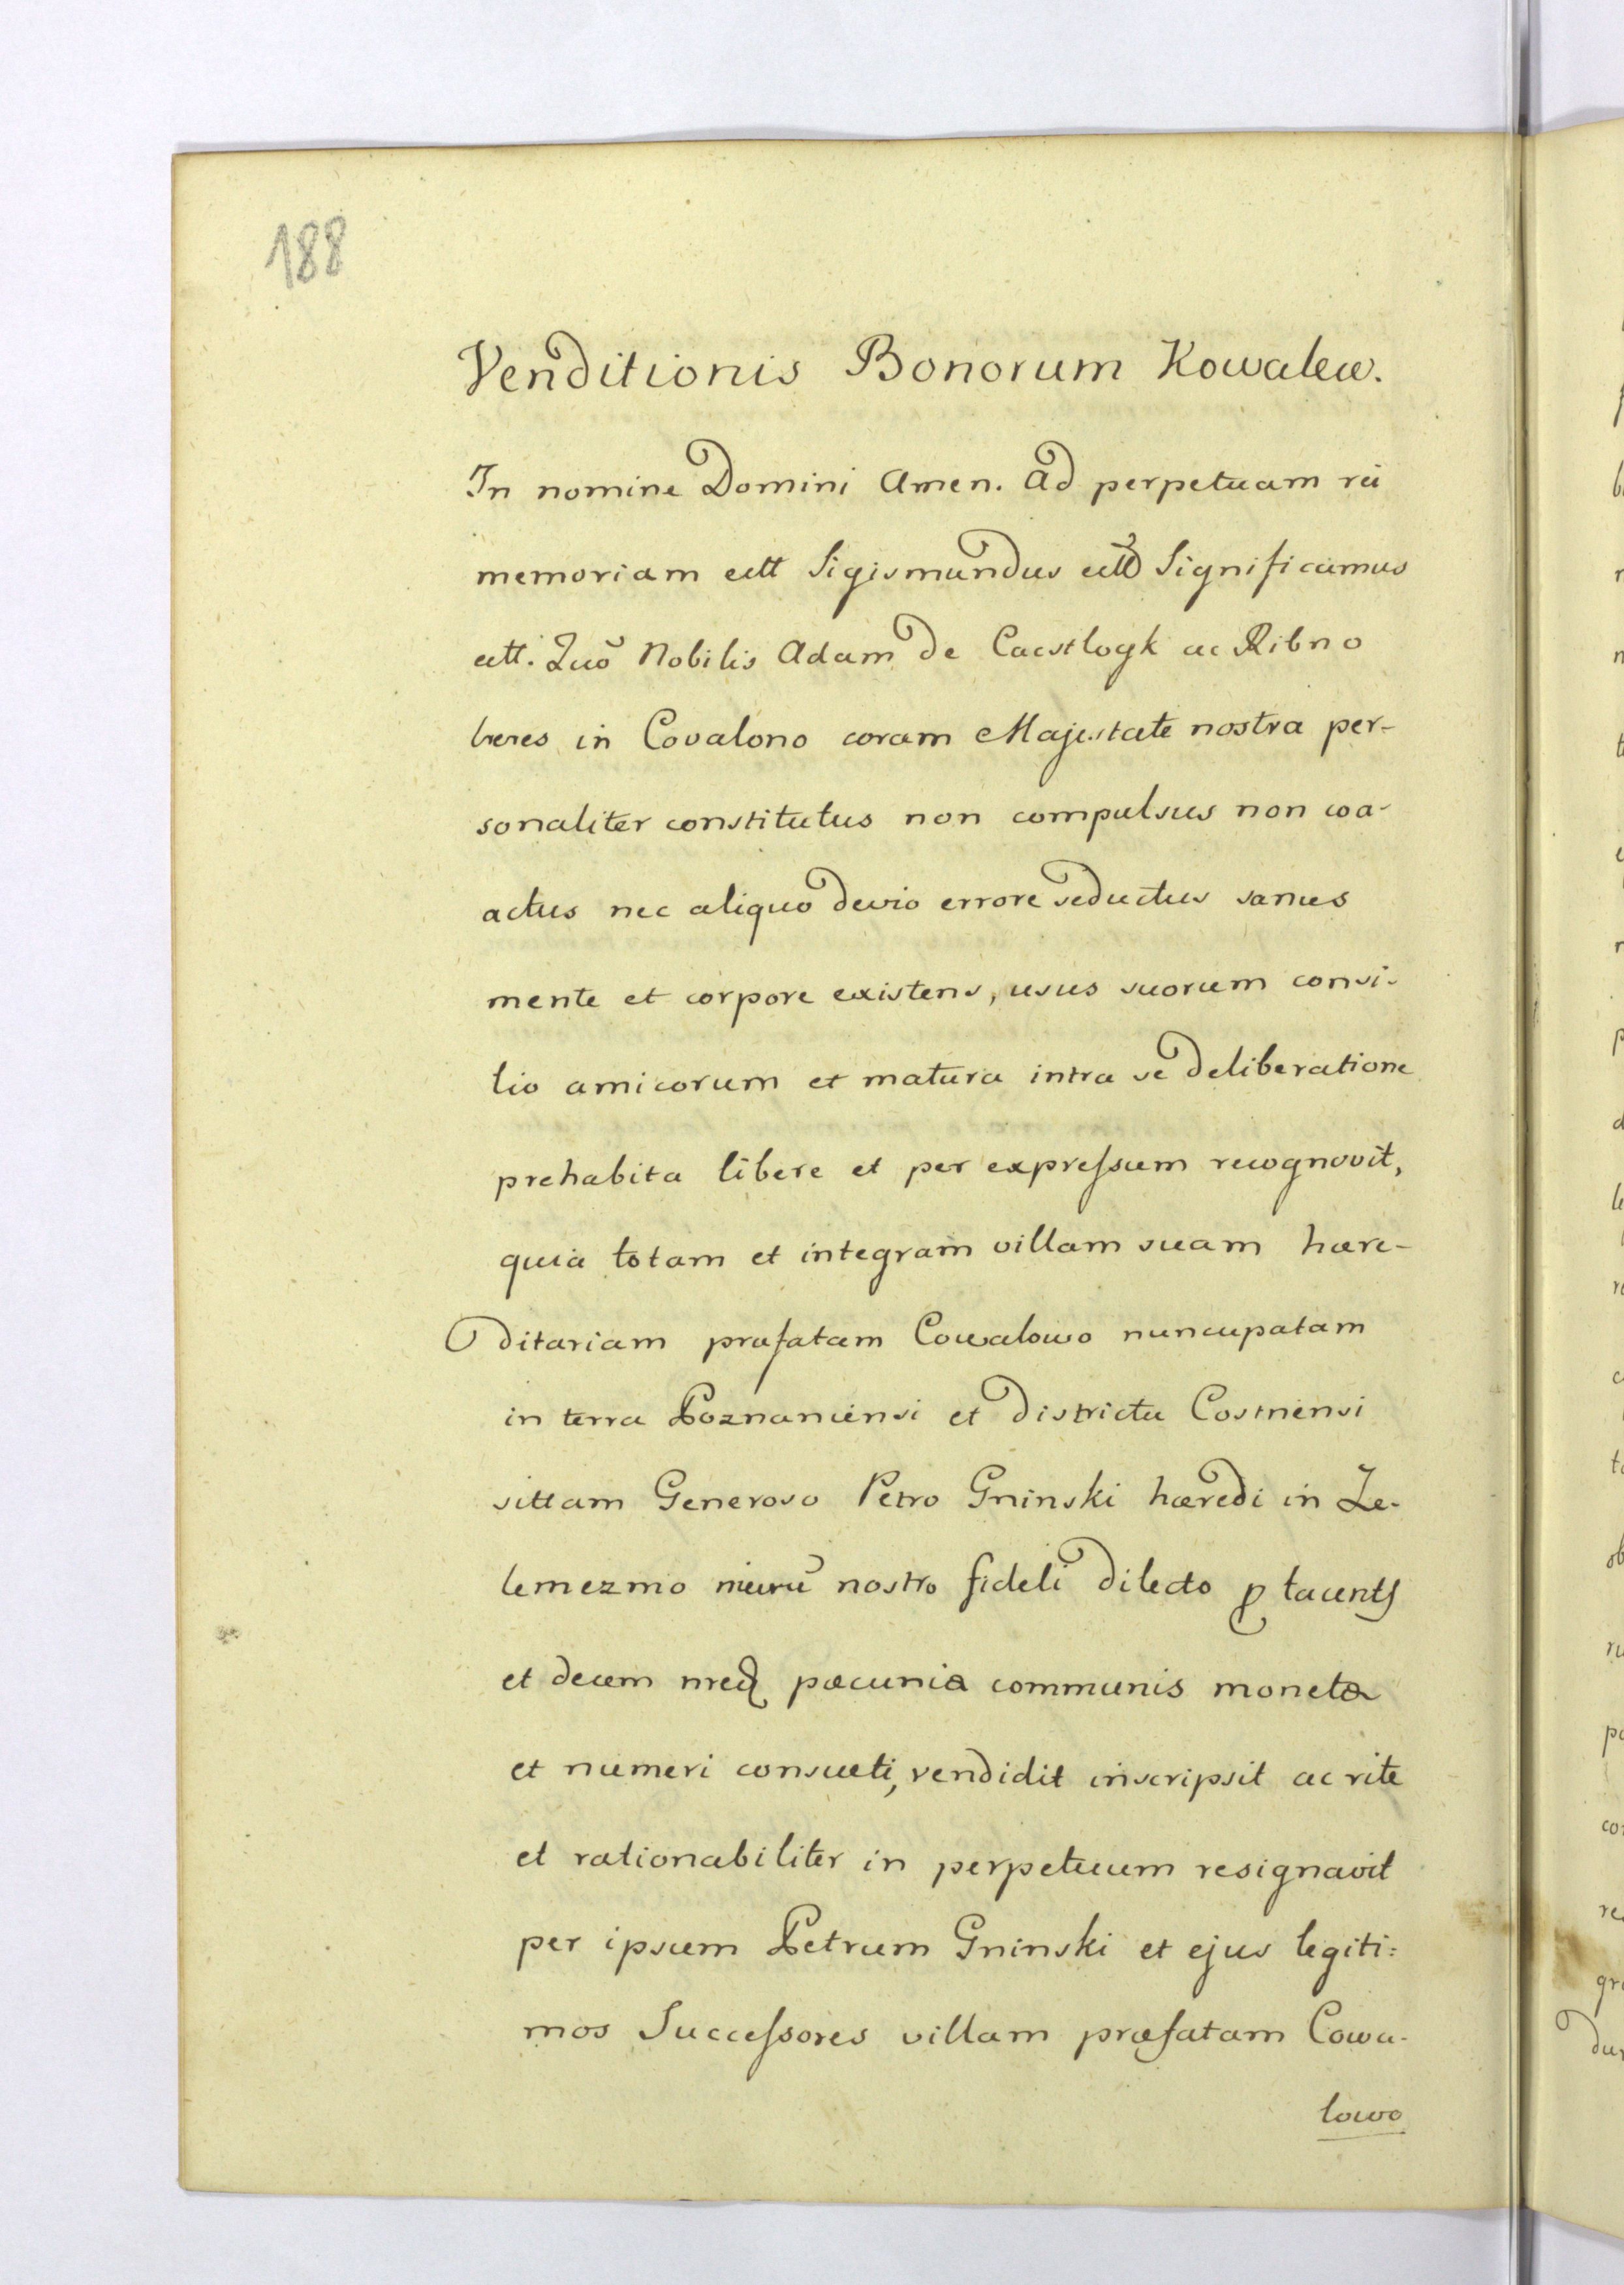 188
Venditionis Bonorum Kowalew.
In nomine Domini Amen. Ad perpetuam rei
memoriam ett Sigismundus ett Significamus
ett. Quō Nobilis Adam de Cacstlogk ac Ribno
heres in Covalono coram Majestate nostra per-
sonaliter constitutus non compulsus non coa-
actus nec aliquo devio errore seductus sanus
mente et corpore existens, usus suorum consi-
lio amicorum et matura intra se deliberatione
prehabita libere et per expressum recognovit,
quia totam et integram villam suam hære-
ditariam præfatam Cowalowo nuncupatam
in terra Poznaniensi et districtu Costnensi
sittam Generoso Petro Gninski hæredi in Ze-
lemezmo nostro fideli dilecto
et decem pæcuniæ communis monetæ
et numeri consueti, vendidit inscripsit ac rite
et rationabiliter in perpetuum resignavit
per ipsum Petrum Gninski et ejus legiti=
mos Successores villam præfatam Cowa-
lowo